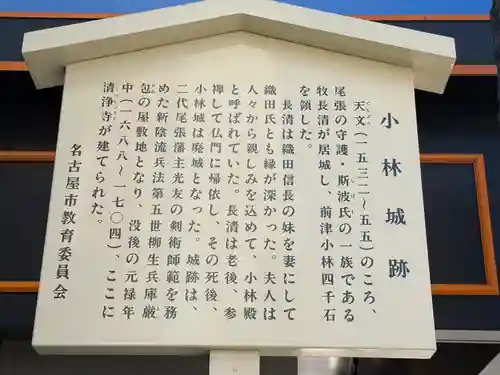 小林城跡
天文（一五三二～五五）のころ、
尾張の守護・斯波氏の一族である
牧長清が居城し、前津小林四千石
を領した。
長清は織田信長の妹を妻にして
織田氏とも縁が深かった。夫人は
人々から親しみを込めて、小林殿
と呼ばれていた。長清は老後、参
禅して仏門に帰依し、その死後、
小林城は廃城となった。城跡は、
二代尾張藩主光友の剣術師範を務
めた新陰流兵法第五世柳生兵庫厳
包の屋敷地となり、没後の元禄年
中（一六八八～一七〇四）、ここに
清浄寺が建てられた。
名古屋市教育委員会